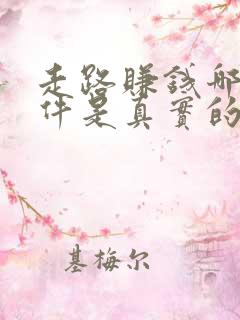 走路賺錢哪
件是真實的
基梅尔